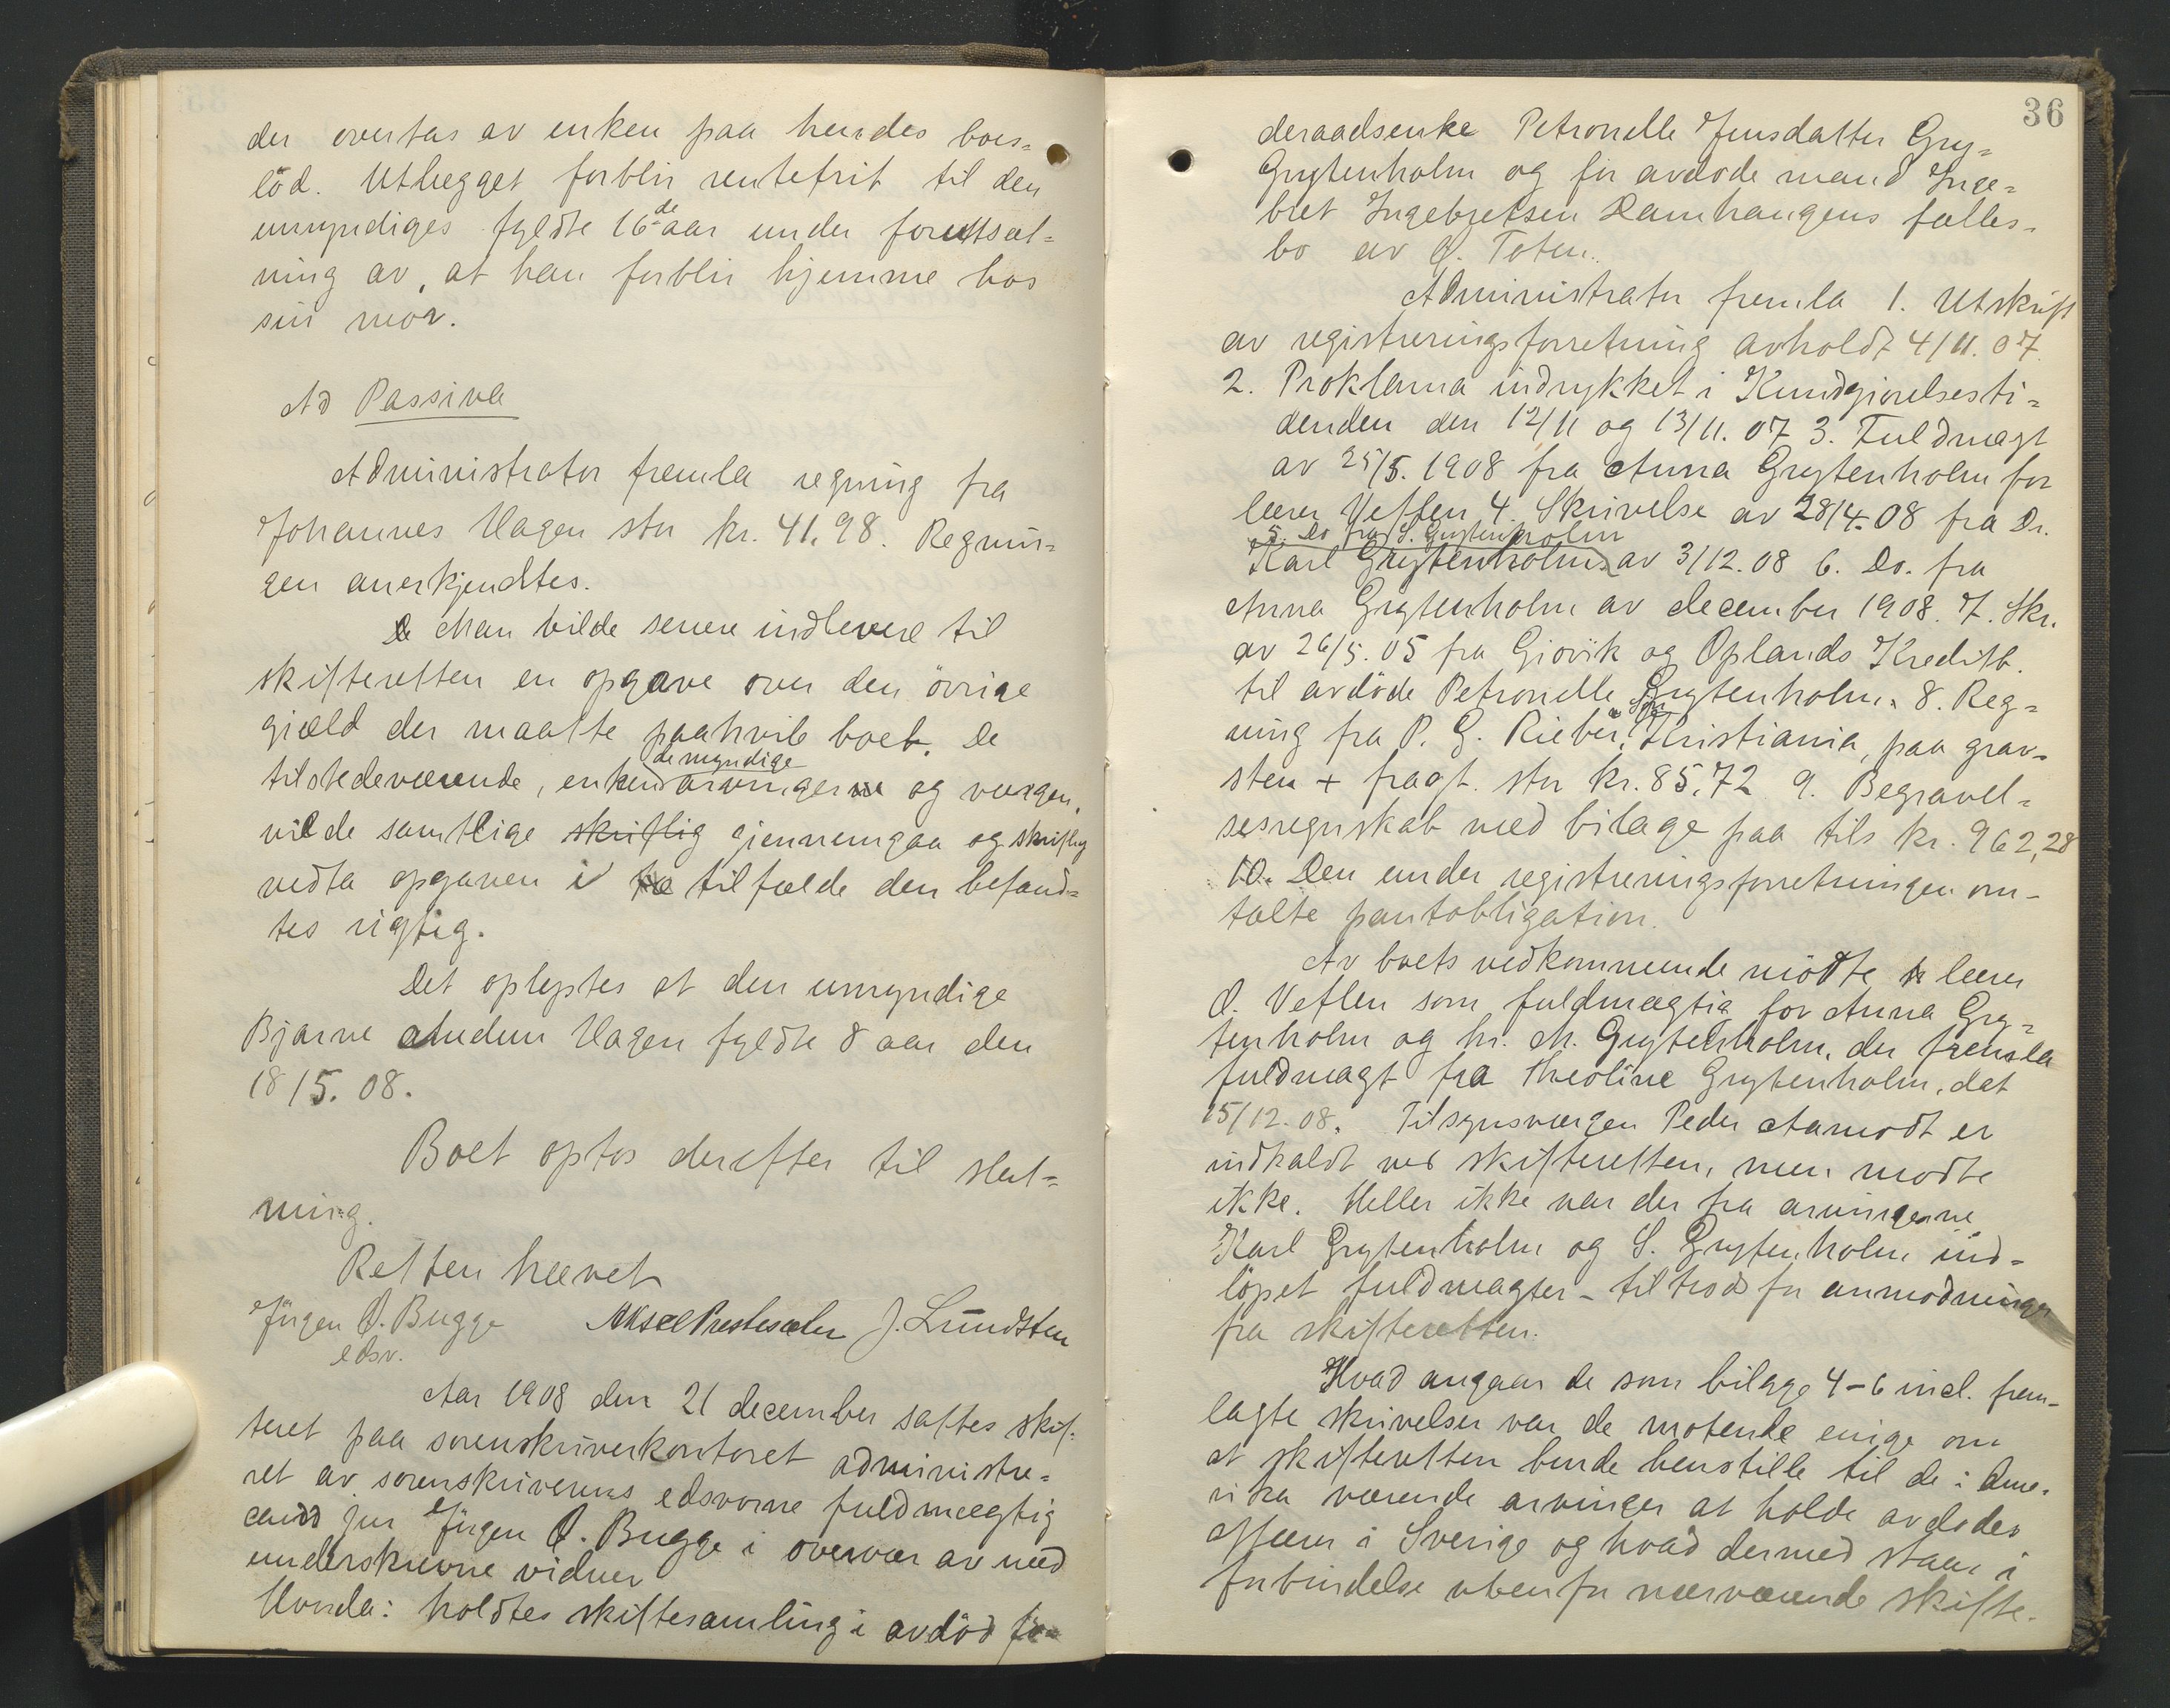 der overtas av enken paa hendes boes-
löd. Utlægget forblir rentefrit til den
umyndiges fyldte 16de aar under forutsæt-
ning av, at han forblir hjemme hos
sin mor.
Ad Passiva
Administrator fremla regning fra
Johannes Hagen stor kr. 41,98. Regnin-
gen anerkjendtes.
Man vilde senere indlevere til
skifteretten en opgave over den övrige
gjæld der maatte paahvile boet. De
de myndige
tilstedeværende, enken arvingerne og værgen,
vilde samtlige skriftlig gjennemgaa og skriftlig
vedta opgaven i tilfælde den befand-
tes rigtig.
Det oplystes at den umyndige
Bjarne Hagen fyldte 8 aar den
18/5. 08.
Boet optos derefter til slut-
ning.
Retten hævet
Jürgen O. Bugge Aksel Prestesæter J. Lundsten
edsv.
Aar 1908 den 21 december sattes skif-
teret paa sorenskriverkontoret administre-
ret av sorenskriverens edsvorne fuldmægtig
cand jur Jürgen O. Bugge i overvær av ned
underskrevne vidner
Hvorda: holdtes skiftesamling i avdöd fo-
36
deraadsenke Petronelle Jensdatter Gry-
Grytenholm og før avdøde mand Inge-
bret Ingebretsen Ramhaugens fælles-
bo av Ø. Toten.
Administrator fremla 1. Utskrift
av registreringsforretning avholdt 4/11. 07.
2. Proklama indrykket i Kundgjørelsesti-
denden den 12/11 og 13/11. 07 3. Fuldmagt
av 25/5. 1908 fra Anna Grytenholm for
lærer Veflen 4. Skrivelse av 28/4. 08 fra Dr.
5. Do fra S. Grytenholm
Karl Grytenholm. av 3/12. 08 6. Do. fra
Anna Grytenholm av december 1908. 7. Skr.
av 26/5. 05 fra Giøvik og Oplands Kreditb.
til avdöde Petronelle Grytenholm. 8. Reg-
& Søn
ning fra P. G. Rieber, Kristiania, paa grav-
sten + fragt. stor kr. 85,72 9. Begravel-
sesregnskab med bilage paa tils kr. 962,28
10. Den under registreringsforretningen om-
talte pantobligation.
Av boets vedkommende mödte lærer
O. Veflen som fuldmægtig for Anna Gry-
tenholm og hr. M. Grytenholm, der fremla
fuldmagt fra Theoline Grytenholm, dat
15/12. 08. Tilsynsværgen Peder Aamodt er
indkaldt ved skifteretten, men mødte
ikke. Heller ikke var der fra arvingerne
Karl Grytenholm og S. Grytenholm ind-
löpet fuldmagter - til trods for anmodninger
fra skifteretten.
Hvad angaar de som bilage 4-6 incl. frem-
lagte skrivelser var de møtende enige om
at skifteretten burde henstille til de i Ame-
rika værende arvinger at holde avdødes
affærer i Sverige og hvad dermed staar i
forbindelse utenfor nærværende skifte.